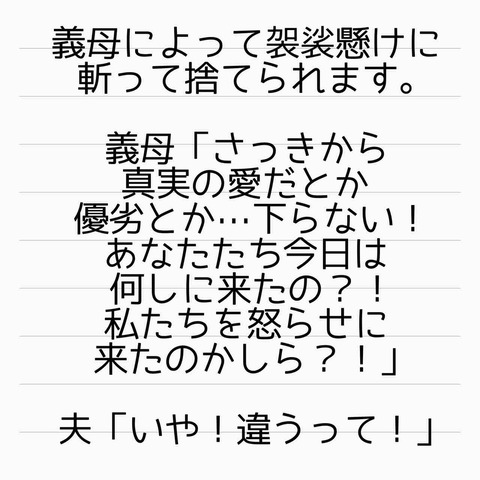 義母によって袈裟懸けに
斬って捨てられます。
義母「さっきから
真実の愛だとか
優劣とか…下らない！
あなたたち今日は
何しに来たの？！
私たちを怒らせに
来たのかしら？！」
夫「いや！違うって！」